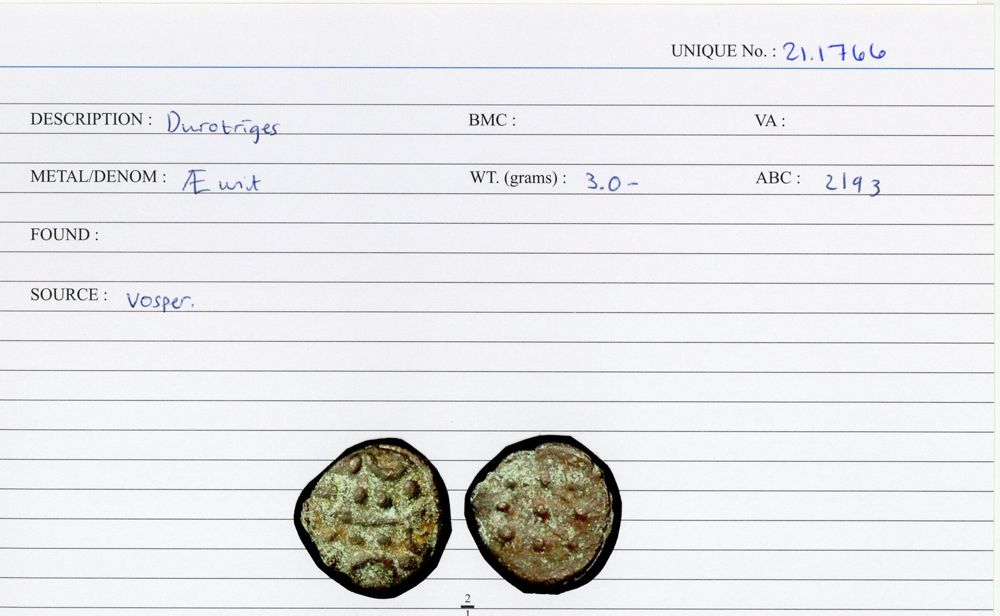 UNIQUE No. : 21.1766
DESCRIPTION : Durotriges BMC : VA :
METAL/DENOM : Æ unit WT. (grams) : 3.0- ABC : 2193
FOUND :
SOURCE : Vosper.
2
1